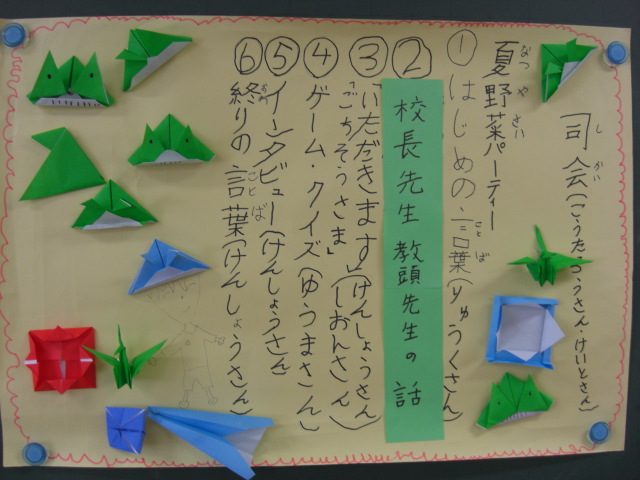 司会(こうたろうさん・けいとさん)
しかい
夏野菜パーティー
なつやさい
①はじめの言葉(りゅうくさん)
ことば
②校長先生 教頭先生の話
③「いただきます」(けんしょうさん)
「ごちそうさま」(しおんさん)
④ゲーム・クイズ(ゆうまさん)
⑤インタビュー(けんしょうさん)
⑥終りの言葉(けんしょうさん)
おわ
ことば